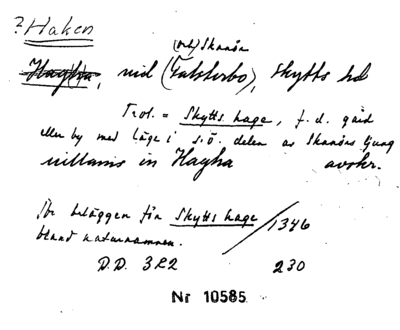 ? Haken
(och) Skanör
Hagha, vid (Falsterbo), Skytts hd
Trol. = Skytts hage, f. d. gård
eller by med läge i s.ö. delen av Skanörs ljung
villamis in Hagha avskr.
Se beläggen för Skytts hage / 1346
bland naturnamnen.
D.D. 3R2 230
Nr 10585